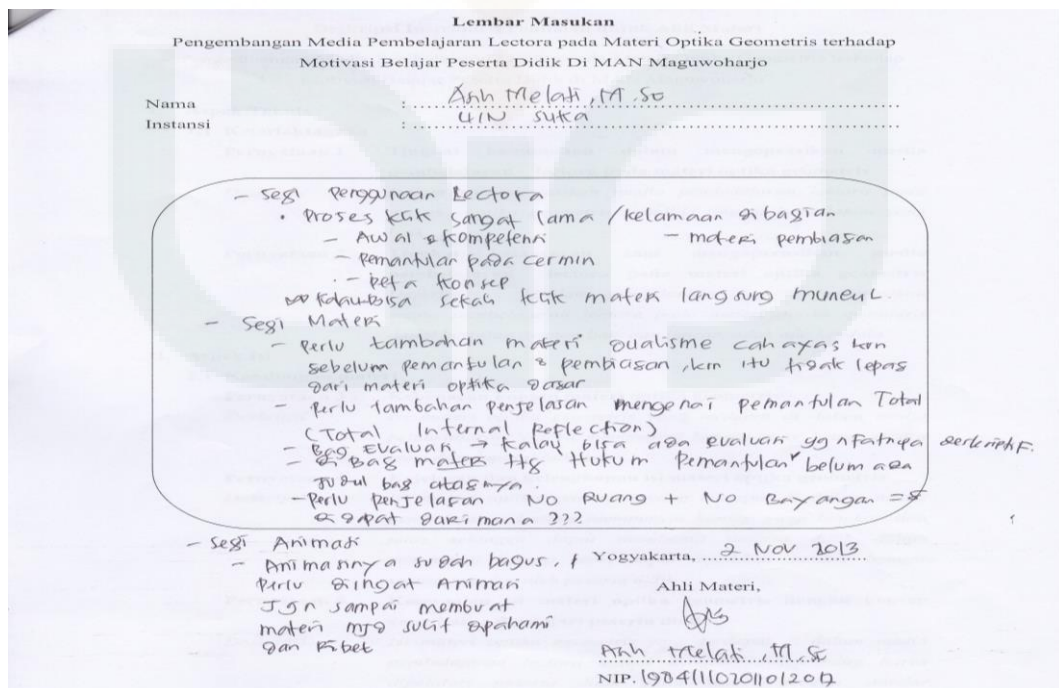 Lembar Masukan
Pengembangan Media Pembelajaran Lectora pada Materi Optika Geometris terhadap
Motivasi Belajar Peserta Didik Di MAN Maguwoharjo
Nama : Asih Melati, M.Sc
Instansi : UIN Suka
- Segi Penggunaan Lectora
• Proses klik sangat lama / kelamaan di bagian
- Awal & kompetensi - materi pembiasan
- Pemantulan pada cermin
- peta konsep
kalau bisa sekali klik materi langsung muncul.
- Segi Materi
- Perlu tambahan materi dualisme cahaya krn
sebelum pemantulan & pembiasan, krn itu tidak lepas
dari materi optika dasar
- Perlu tambahan penjelasan mengenai pemantulan Total
(Total Internal Reflection)
- Bag Evaluasi → kalau bisa ada evaluasi yg sifatnya deskriptif.
- di Bag materi ttg Hukum Pemantulan belum ada
judul bag atasnya.
- Perlu Penjelasan No Ruang + No Bayangan = 5
di dapat dari mana ???
- Segi Animasi
- Animasinya sudah bagus,
Perlu diingat Animasi
Jgn sampai membuat
materi mjd sulit dipahami
dan Ribet
Yogyakarta, 2 Nov 2013
Ahli Materi,
Asih Melati, M.Sc
NIP.